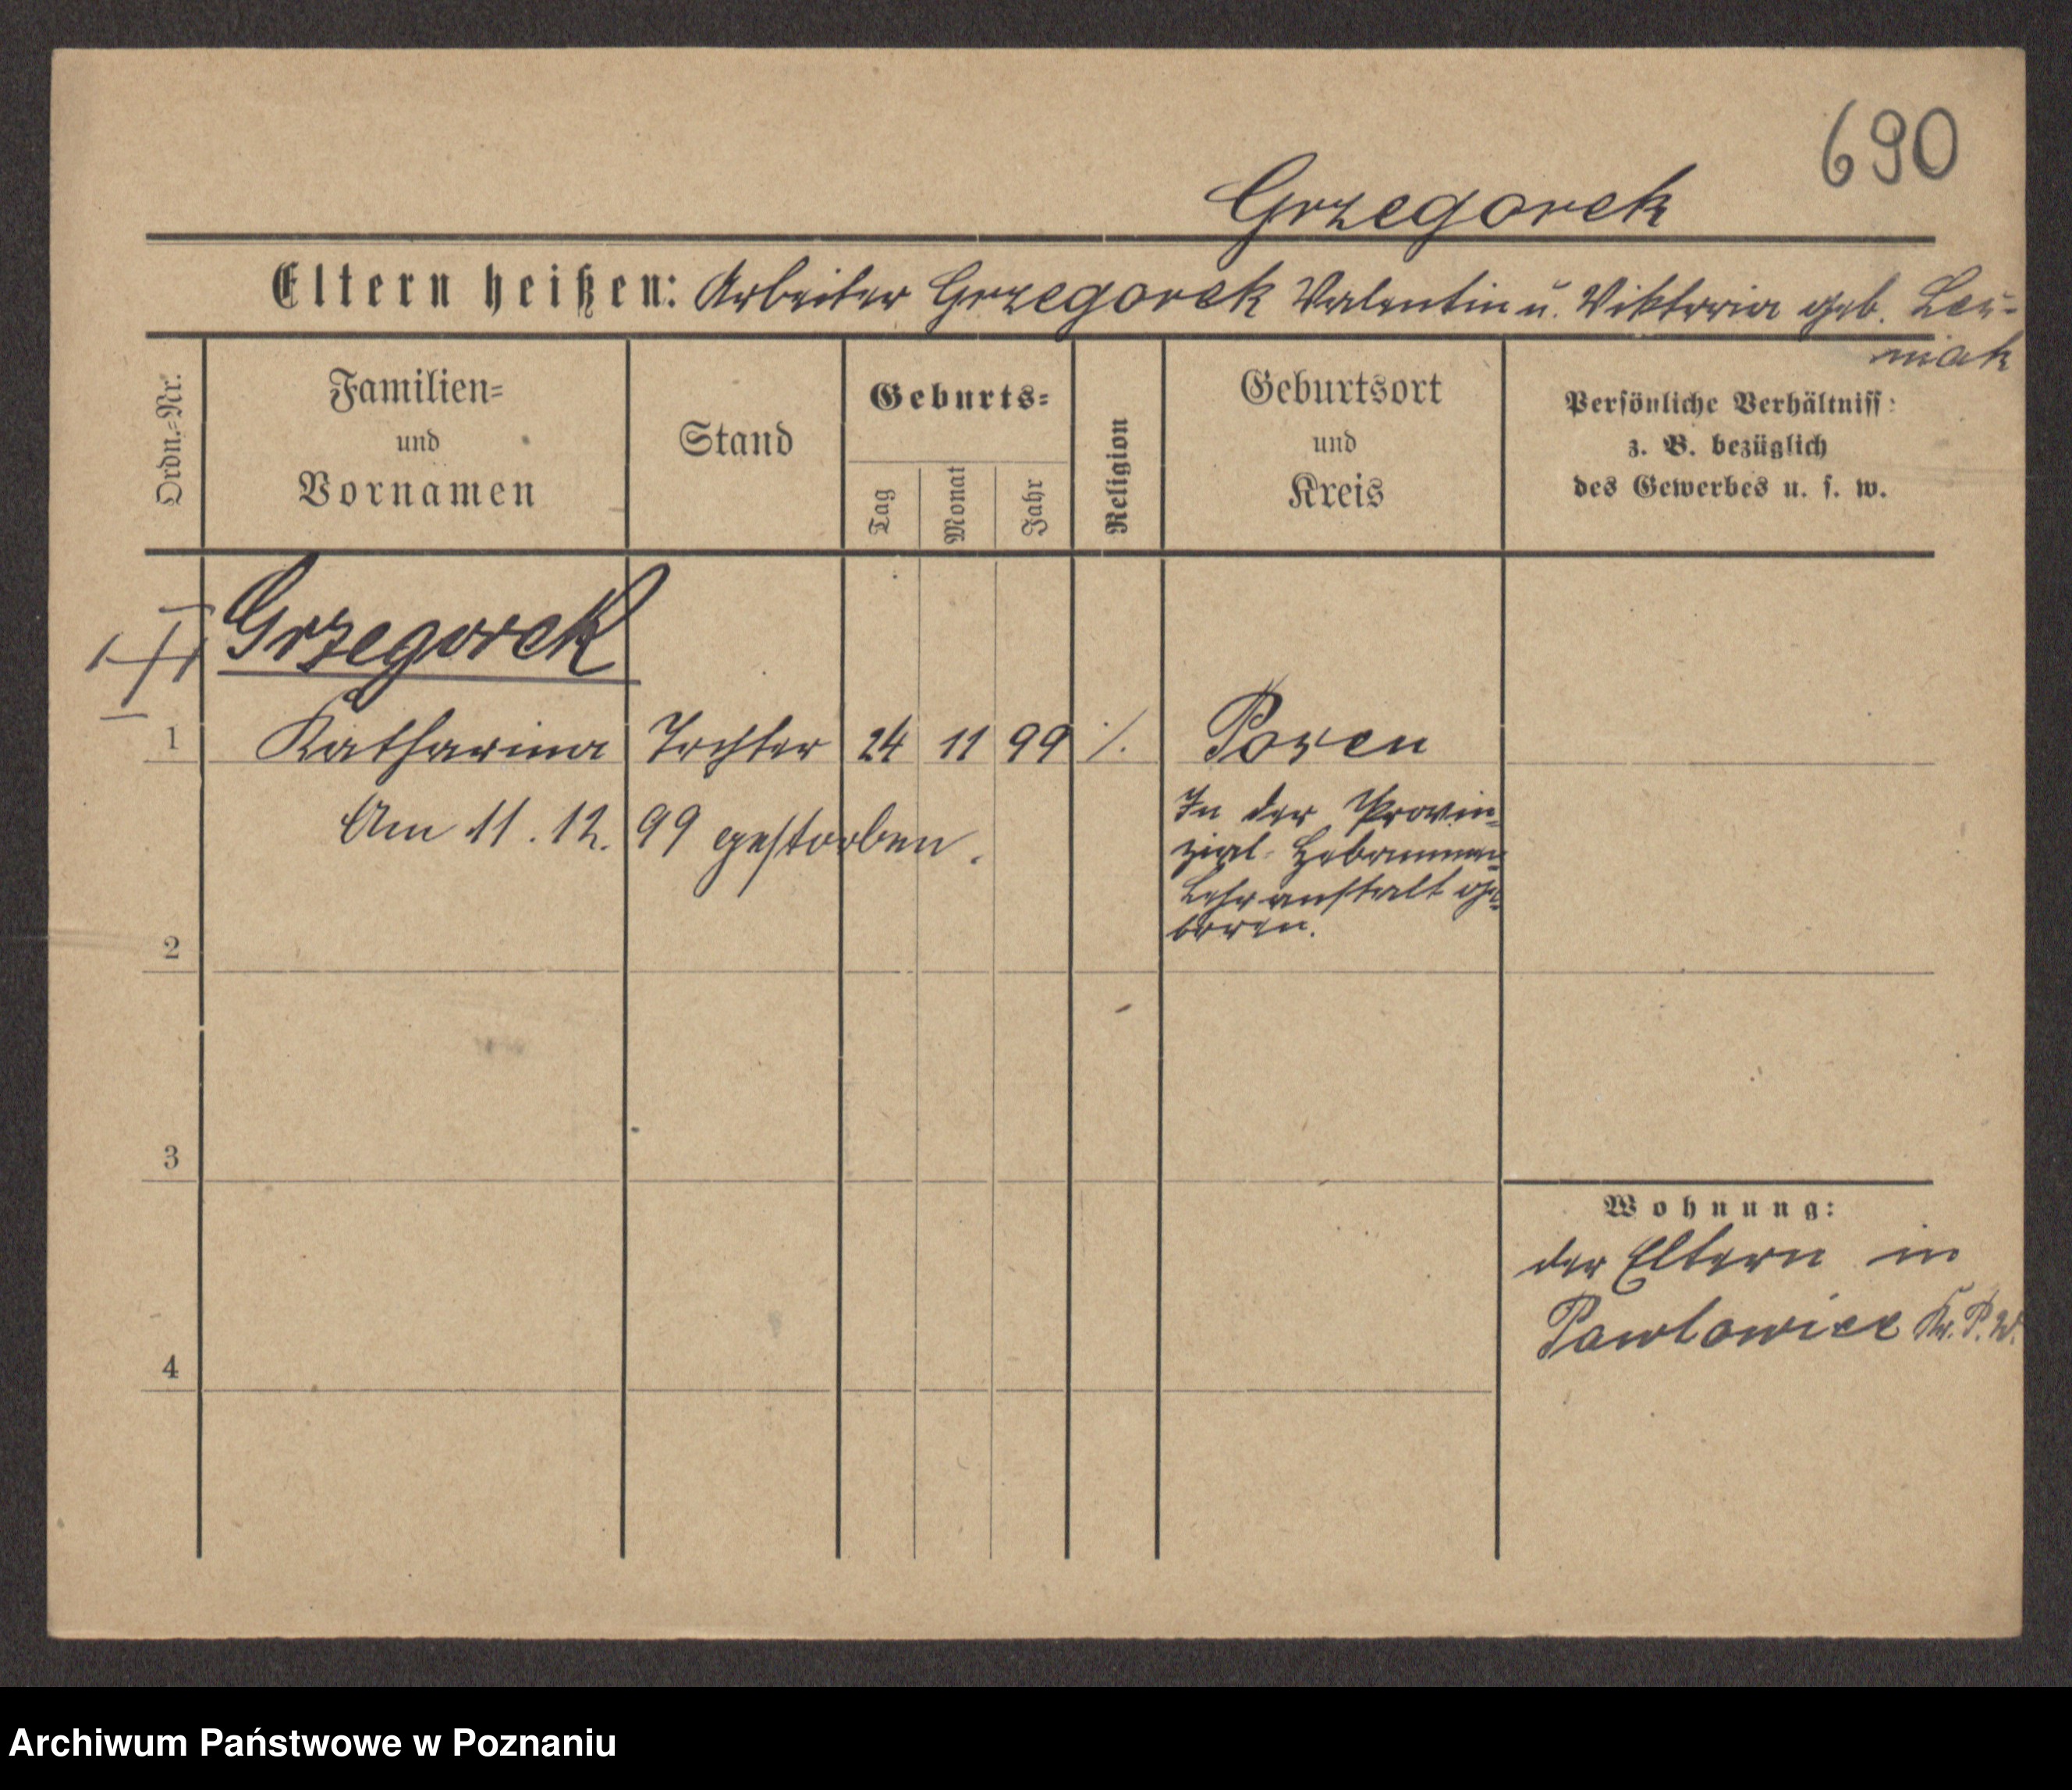 690
Grzegorek
Eltern heißen: Arbeiter Grzegorek Valentin u. Viktoria geb.
niak
Ordn.-Nr.
Familien-
und
Vornamen
Stand
Geburts-
Tag
Monat
Jahr
Religion
Geburtsort
und
Kreis
Persönliche Verhältniss:
z. B. bezüglich
des Gewerbes u. s. w.
Grzegorek
1 Katharina Tochter 24 11 99 ·/. Posen
Am 11. 12. 99 gestorben.
In der Provin-
zial-Hebammen-
Lehranstalt ge-
boren.
2
3
Wohnung:
der Eltern in
Pawlowice Kr. P. W.
4
Archiwum Państwowe w Poznaniu